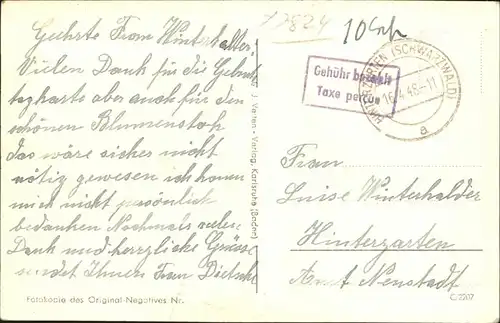 77824
10 Gr
Geehrte Frau Winterhalter.
Vielen Dank für die Geburts
tagkarte aber auch für den
schönen Blumenstoh
das wäre sicher nicht
nötig gewesen ich konn
mich nicht persönlich
bedanken Nochmals vielen
Dank und herzliche Grüsse
sendet Ihnen Frau Dietsche
Fotokopie des Original-Negatives Nr.
Verlag, Karlsruhe (Baden)
Gebühr bezahlt
Taxe perçue
HINTERZARTEN (SCHWARZWALD)
16.4.48.-11
a
Frau
Luise Winterhalder
Hinterzarten
Amt Neustadt
C/2207